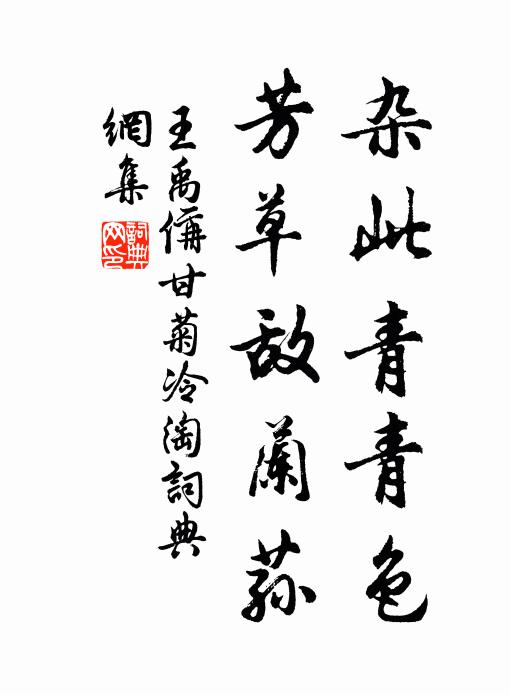 杂此青青色
芳草敌蘭荪
王禹偁甘菊冷淘詞典
網集
詞典
网印